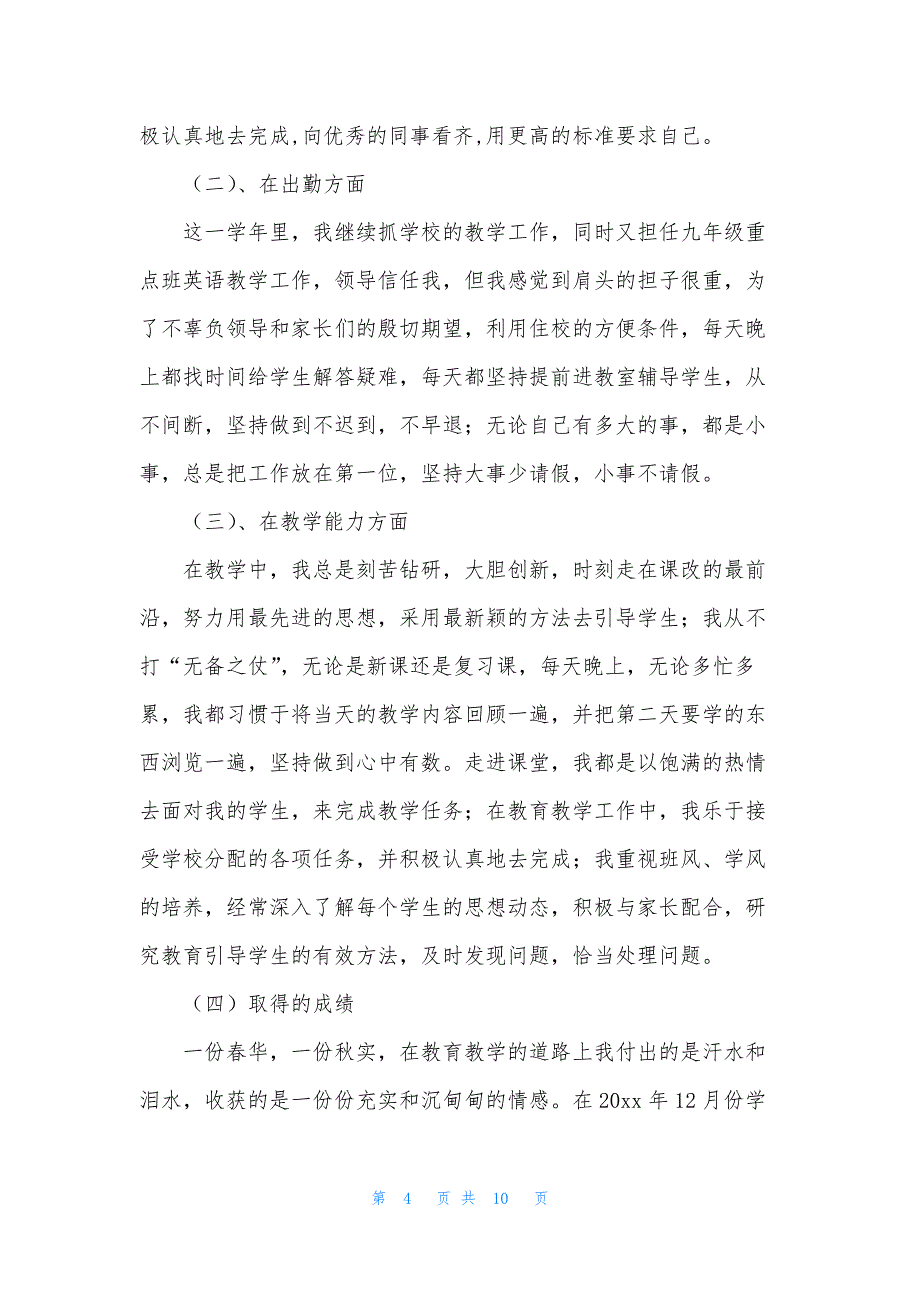 极认真地去完成,向优秀的同事看齐,用更高的标准要求自己。
（二）、在出勤方面
这一学年里，我继续抓学校的教学工作，同时又担任九年级重
点班英语教学工作，领导信任我，但我感觉到肩头的担子很重，为
了不辜负领导和家长们的殷切期望，利用住校的方便条件，每天晚
上都找时间给学生解答疑难，每天都坚持提前进教室辅导学生，从
不间断，坚持做到不迟到，不早退；无论自己有多大的事，都是小
事，总是把工作放在第一位，坚持大事少请假，小事不请假。
（三）、在教学能力方面
在教学中，我总是刻苦钻研，大胆创新，时刻走在课改的最前
沿，努力用最先进的思想，采用最新颖的方法去引导学生；我从不
打“无备之仗”，无论是新课还是复习课，每天晚上，无论多忙多
累，我都习惯于将当天的教学内容回顾一遍，并把第二天要学的东
西浏览一遍，坚持做到心中有数。走进课堂，我都是以饱满的热情
去面对我的学生，来完成教学任务；在教育教学工作中，我乐于接
受学校分配的各项任务，并积极认真地去完成；我重视班风、学风
的培养，经常深入了解每个学生的思想动态，积极与家长配合，研
究教育引导学生的有效方法，及时发现问题，恰当处理问题。
（四）取得的成绩
一份春华，一份秋实，在教育教学的道路上我付出的是汗水和
泪水，收获的是一份份充实和沉甸甸的情感。在 20xx 年 12 月份学
第 4 页 共 10 页